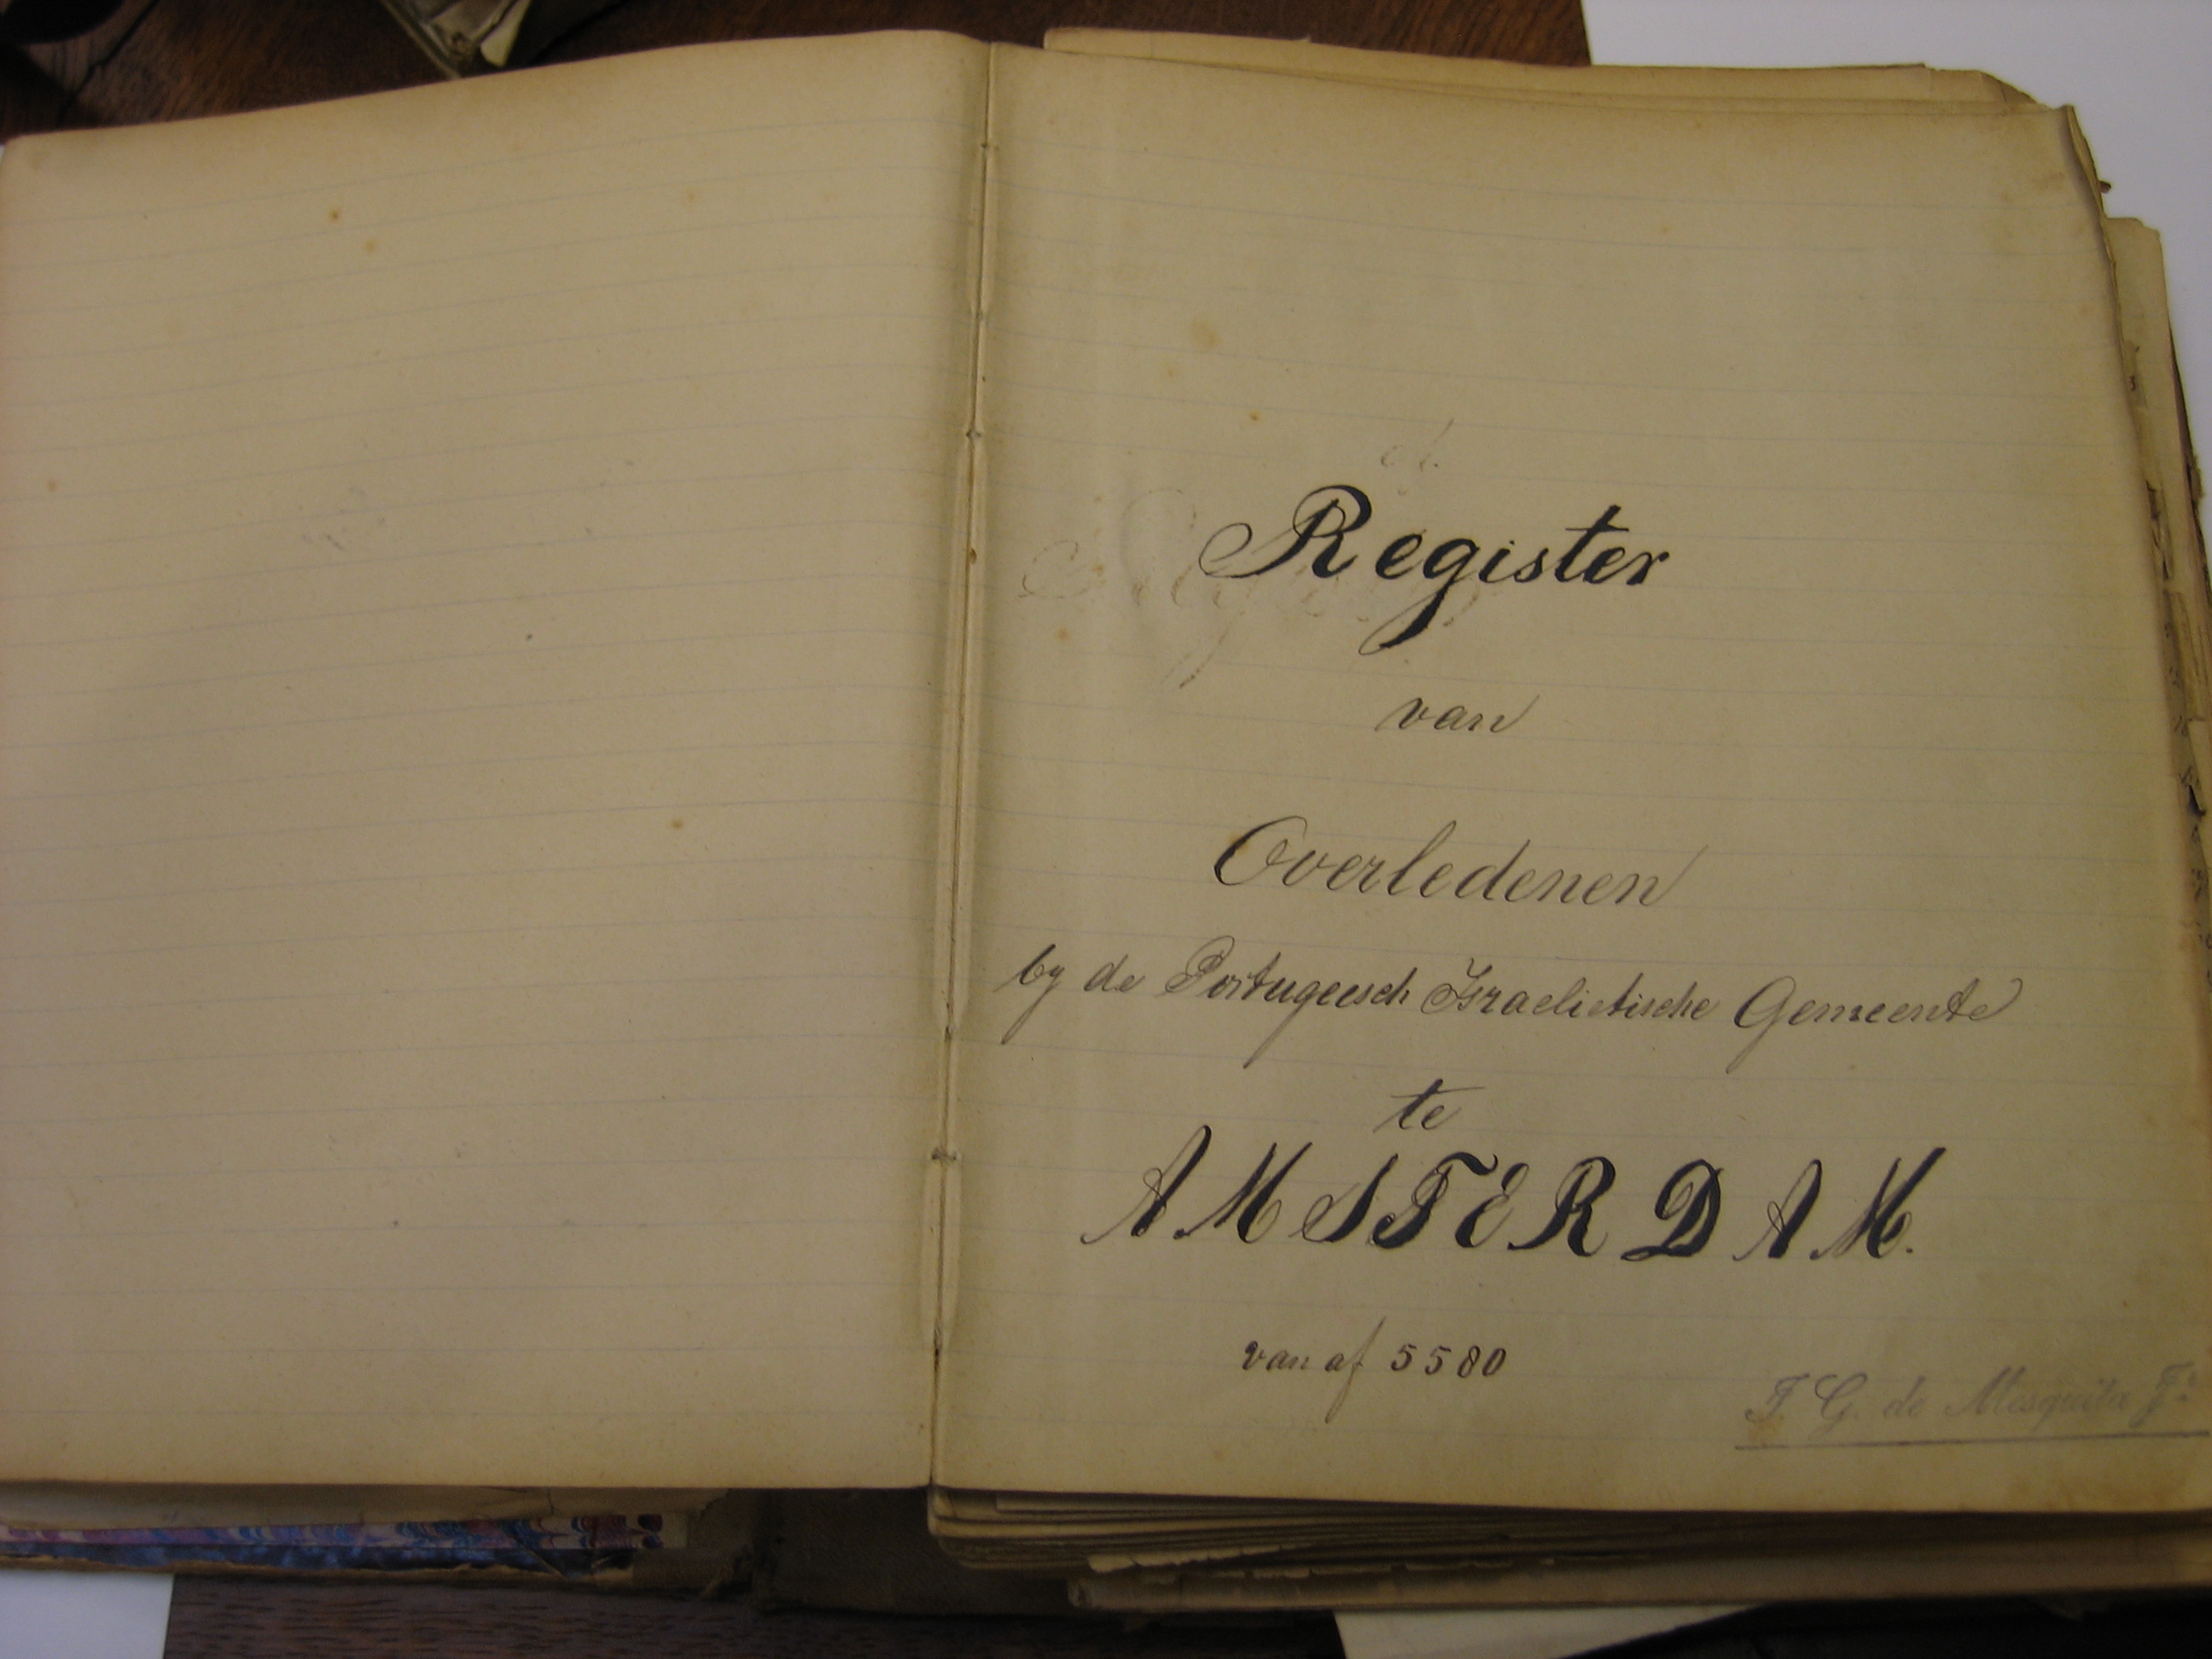 Register
van
Overledenen
by de Portugeesch Israelietische Gemeente
te
AMSTERDAM.
van af 5580
J G. de Mesquita Jr.